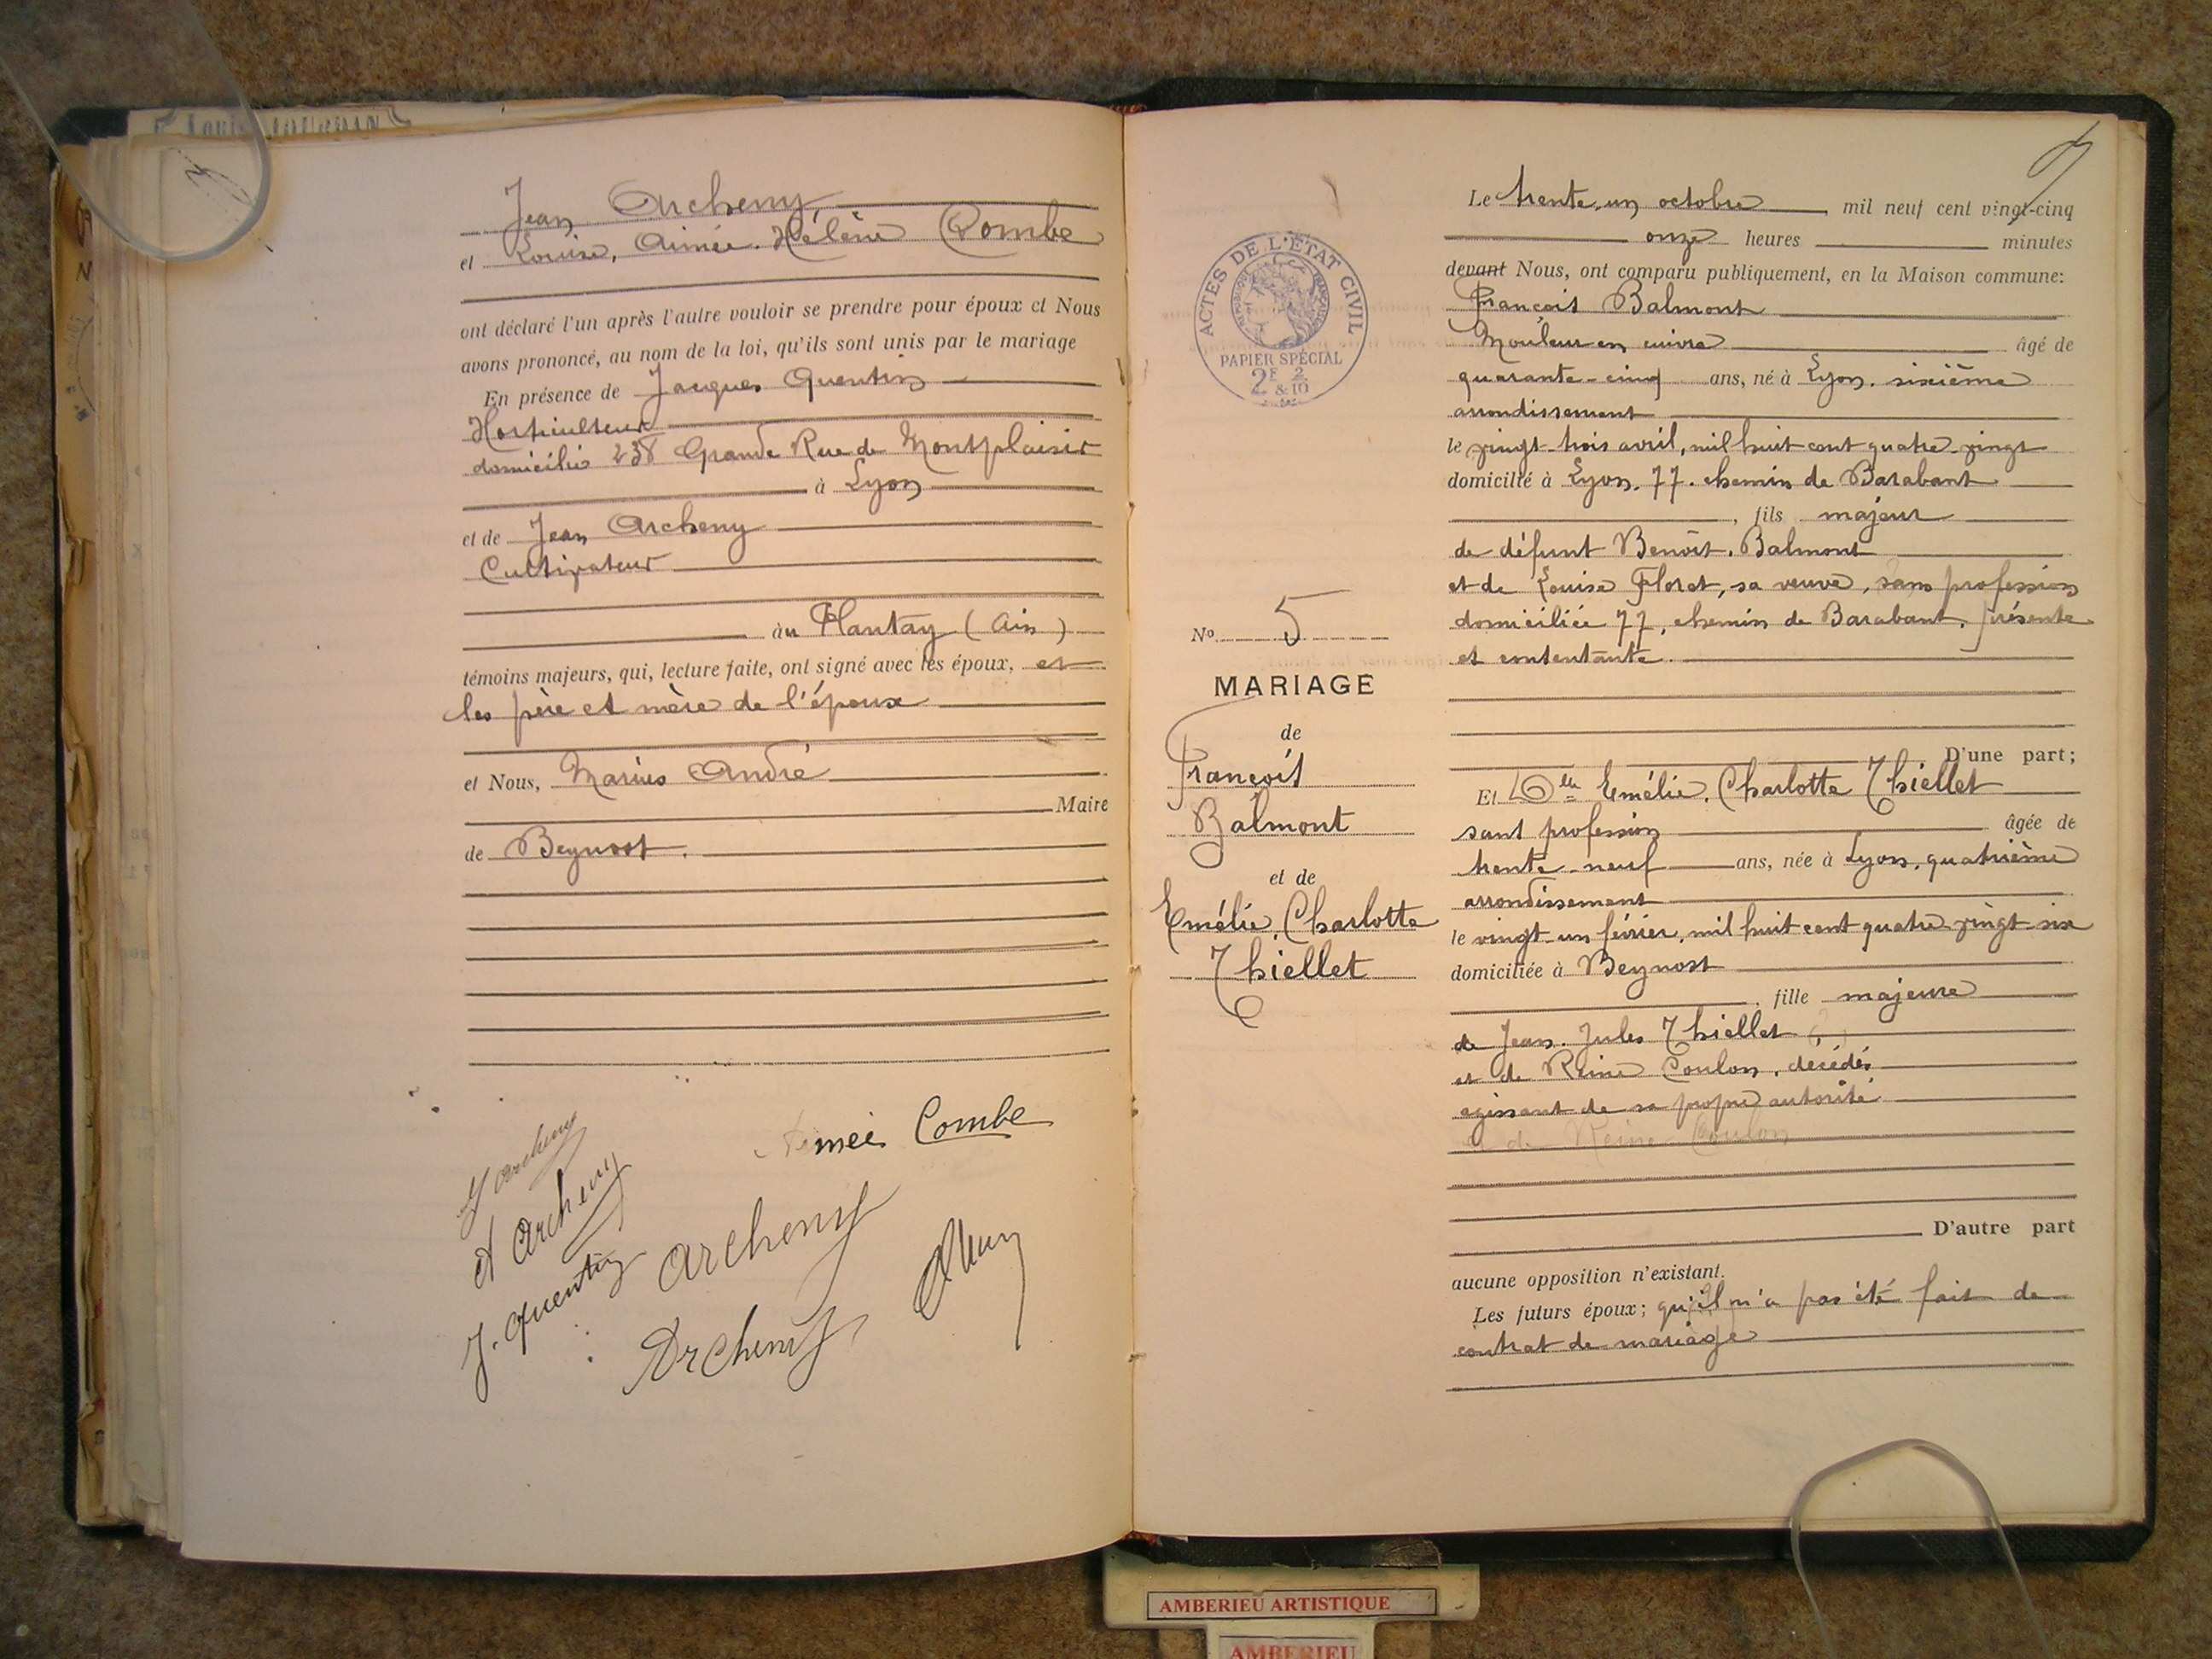 Louis JOURDAN
Jean Archeny
et Louise, Aimée. Hélène Combe
ont déclaré l'un après l'autre vouloir se prendre pour époux et Nous
avons prononcé, au nom de la loi, qu'ils sont unis par le mariage
En présence de Jacques Quentin
Horticulteur
domicilié 238 Grande Rue de Montplaisir
à Lyon
et de Jean Archeny
Cultivateur
au Plantay (Ain)
témoins majeurs, qui, lecture faite, ont signé avec les époux, et
les père et mère de l'époux
et Nous, Marius André
Maire
de Beynost.
Aimée Combe
J Archeny
A Archeny
J. Quentin
Archeny
Archeny
ACTES DE L'ÉTAT CIVIL
PAPIER SPÉCIAL
2F 2
& 10
No 5
MARIAGE
de
François
Balmont
et de
Emélie, Charlotte
Thiellet
Le trente-un octobre mil neuf cent vingt-cinq
onze heures minutes
devant Nous, ont comparu publiquement, en la Maison commune:
François Balmont
Mouleur en cuivre âgé de
quarante-cinq ans, né à Lyon. sixième
arrondissement
le vingt-trois avril, mil huit cent quatre-vingt
domicilié à Lyon. 77. chemin de Barabant
, fils majeur
de défunt Benoît. Balmont
et de Louise Floret, sa veuve, sans profession
domiciliée 77, chemin de Barabant. présente
et contentante.
D'une part;
Et Dlle Emélie. Charlotte Thiellet
sant profession âgée de
trente-neuf ans, née à Lyon, quatrième
arrondissement
le vingt-un février, mil huit cent quatre vingt-six
domiciliée à Beynost
, fille majeure
de Jean. Jules Thiellet
et de Reine Coulon, decédés
agissant de sa propre autorité
et de Reine Coulon
D'autre part
aucune opposition n'existant.
Les futurs époux; qu'il n'a pas été fait de
contrat de mariage
AMBERIEU ARTISTIQUE
AMBERIEU